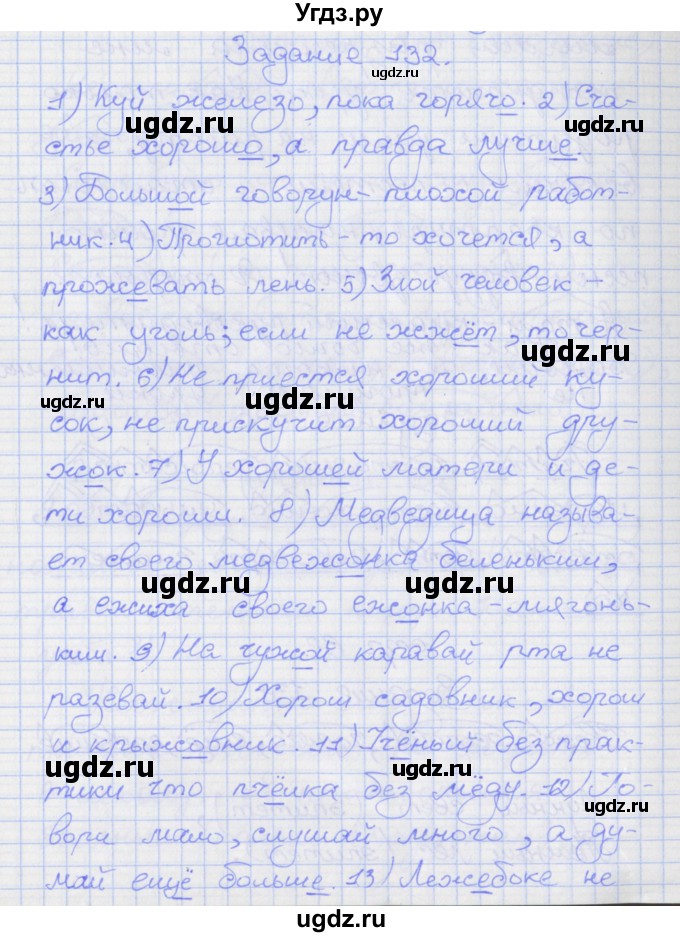 Угдз.ру
Задание 132.
ugdz.ru
1) Куй железо, пока горячо. 2) Сча-
ugdz.ru ugdz.ru
стье хорошо, а правда лучше.
3) Большой говорун - плохой работ-
ugdz.ru ugdz.ru
ник. 4) Проглотить-то хочется, а
прожевать лень. 5) Злой человек -
как уголь; если не жжёт, то чер-
ugdz.ru
нит. 6) Не приестся хороший ку-
ugdz.ru ugdz.ru
сок, не прискучит хороший дру-
жок. 7) У хорошей матери и де-
ти хороши. 8) Медведица называ-
ет своего медвежонка беленьким,
ugdz.ru ugdz.ru
а ежиха своего ежонка - мягонь-
ким. 9) На чужой каравай рта не
разевай. 10) Хорош садовник, хорош
и крыжовник. 11) Учёный без прак-
ugdz.ru ugdz.ru
тики что пчёлка без мёду. 12) Го-
ugdz.ru
вори мало, слушай много, а ду-
май ещё больше. 13) Лежебоке не
ugdz.ru